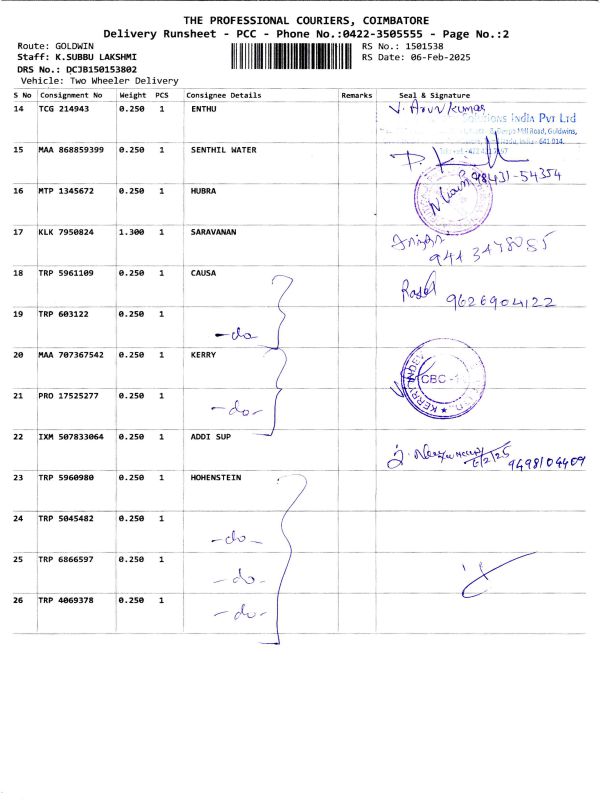 THE PROFESSIONAL COURIERS, COIMBATORE
Delivery Runsheet - PCC - Phone No.:0422-3505555 - Page No.:2
Route: GOLDWIN
RS No.: 1501538
Staff: K.SUBBU LAKSHMI
RS Date: 06-Feb-2025
DRS No.: DCJB150153802
Vehicle: Two Wheeler Delivery
S No Consignment No Weight PCS Consignee Details Remarks Seal & Signature
14 TCG 214943 0.250 1 ENTHU
V. Arun kumar
India Pvt Ltd
Mill Road, Goldwins,
India - 641 014.
15 MAA 868859399 0.250 1 SENTHIL WATER
98431-54354
16 MTP 1345672 0.250 1 HUBRA
17 KLK 7950824 1.300 1 SARAVANAN
18 TRP 5961109 0.250 1 CAUSA
9626904122
19 TRP 603122 0.250 1
-do
20 MAA 707367542 0.250 1 KERRY
CBC
KERRY INDEV
21 PRO 17525277 0.250 1
-do-
22 IXM 507833064 0.250 1 ADDI SUP
6/2/25
9498104409
23 TRP 5960980 0.250 1 HOHENSTEIN
24 TRP 5045482 0.250 1
-do-
25 TRP 6866597 0.250 1
-do-
26 TRP 4069378 0.250 1
-do-